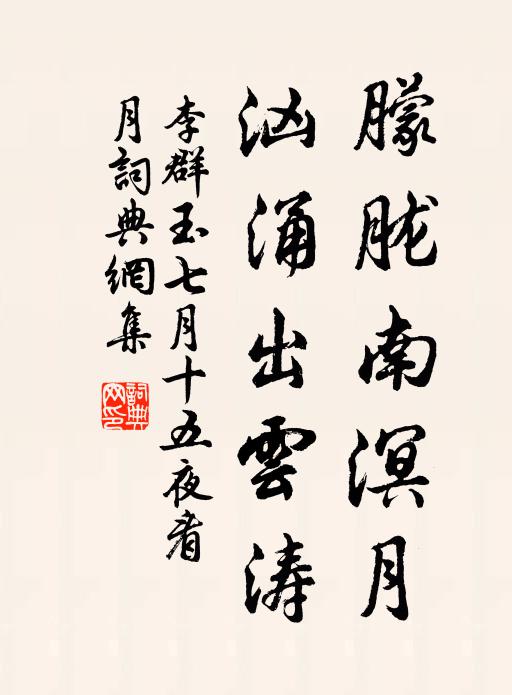 朦胧南溟月
汹涌出雲涛
李群玉七月十五夜看
月詞典網集
詞典网印